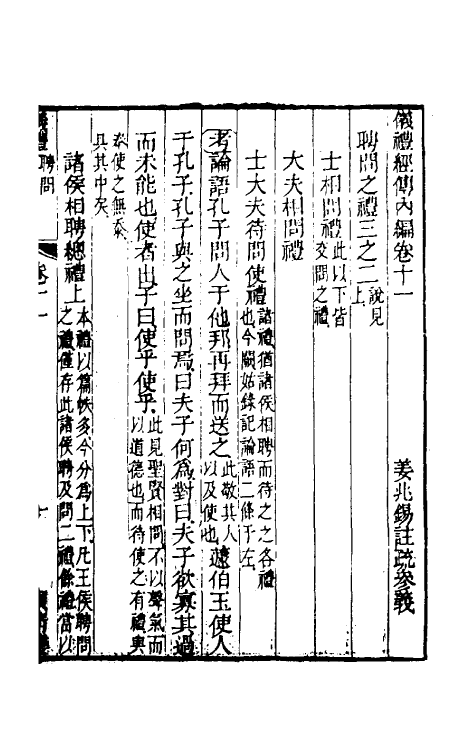 儀禮經傳內編卷十一
姜兆錫註疏參義
聘問之禮三之二說見上
士相問禮此以下皆交問之禮
大夫相問禮
士大夫待問使禮諸禮猶諸侯相聘而待之之各禮也今闕姑錄記論語二條于左
考論語孔子問人于他邦再拜而送之此敬其人以及使也蘧伯玉使人
于孔子孔子與之坐而問焉曰夫子何為對曰夫子欲寡其過
而未能也使者出子曰使乎使乎此見聖賢相問不以聲氣而以道德也而待使之有禮與
奉使之無忝具其中矣
諸侯相聘總禮上本禮以篇帙多今分為上下凡王侯聘問之禮僅存此諸侯聘及問二禮條禮當以
儀禮 聘問
卷十一